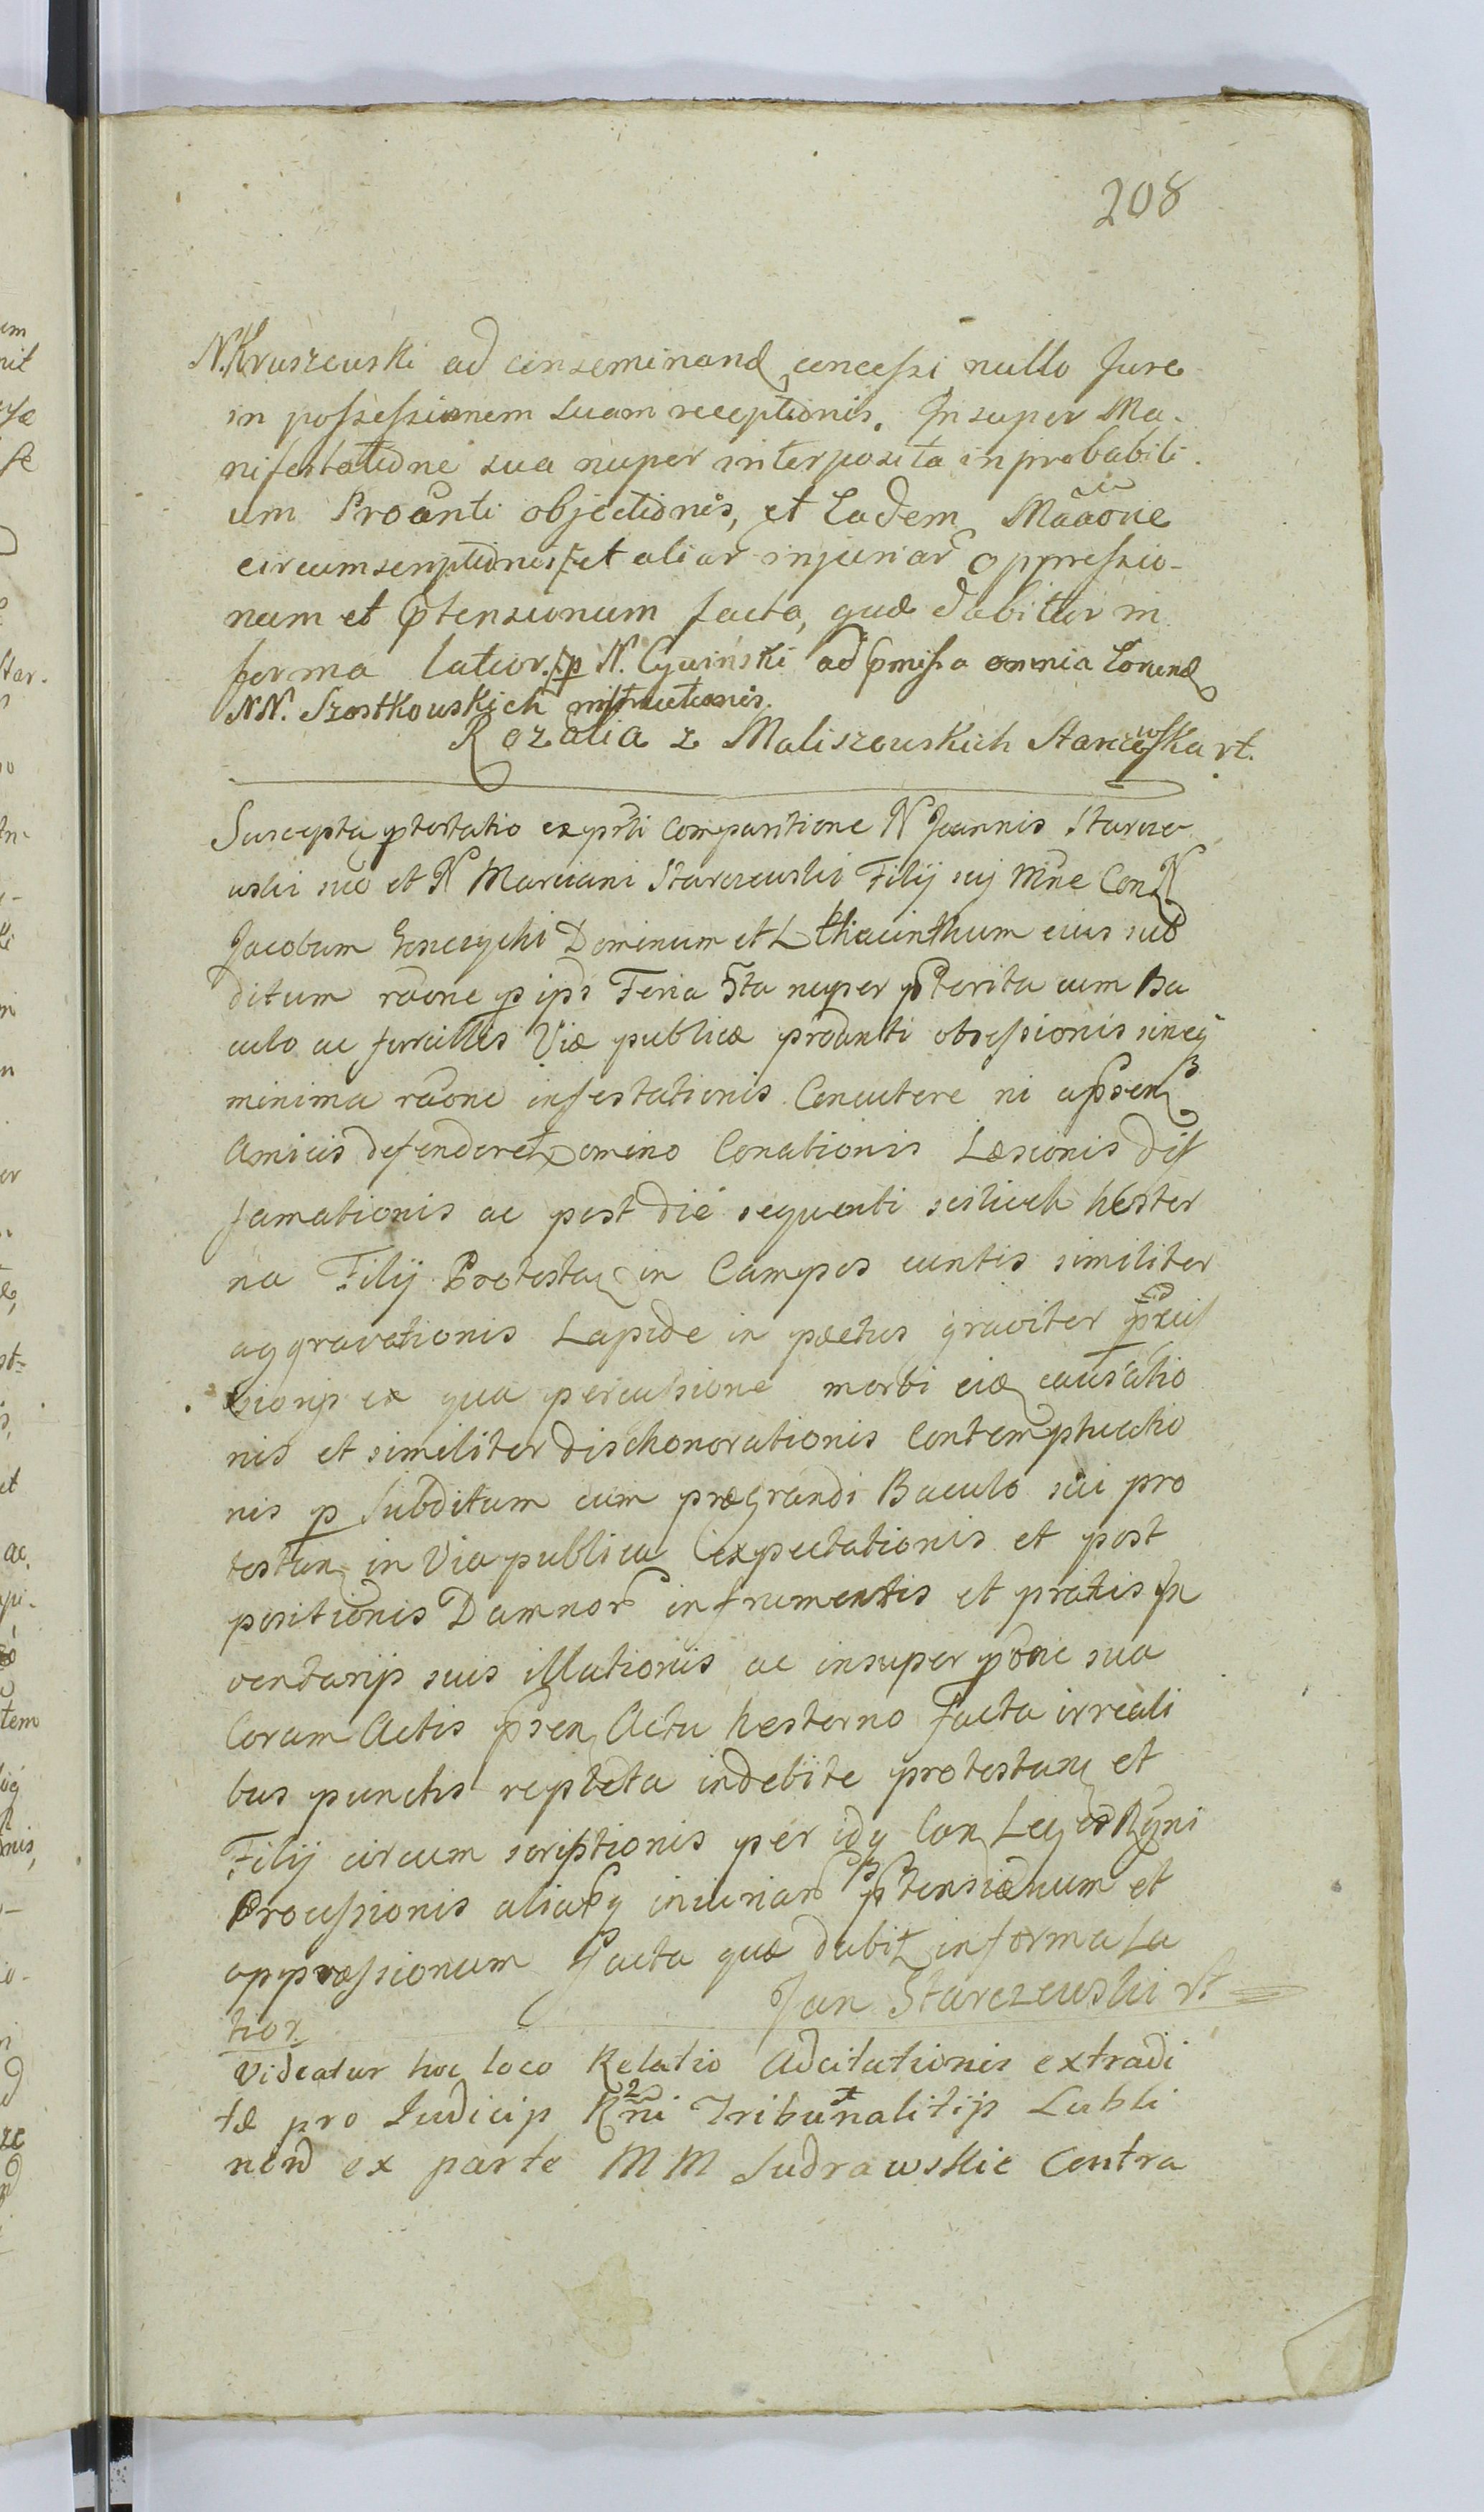 208
N. Kruszewski ad inseminand concessi nullo Jure
in possessionem suam receptionis. Insuper Ma-
nifestatione sua nuper interposita inprobabili
um Proanti objectionis, et Eadem Mãaone
circumscriptionis, et aliar injuriar oppressio-
num et Ptensionum facta, quæ dabitur in
forma latior. p N. Cywinski ad Pmissa omnia
NN. Szostkowskich instructionis.
Rozalia z Maliszewskich Starczewska rt.
Suscepta ptestatio ex prti Comparitione N Joannis Starcze
wski suo et N Marciani Starczewski Filij sui Nine Con N
Jacobum Dominum et L Hiacinthum eius sub
ditum raone p ips Feria 5ta nuper pterita cum Ba
culo ac furcillis Viæ publicæ proanti obsessionis sineq
minima raone infestationis Concutere ni apsen
Amicis defenderet Domino Conationis Læsionis dif
famationis ac post die sequenti scilicet hester
na Filij Protestan in Campos euntis similiter
aggravationis Lapide in pectus graviter
ex qua percussione morbi eid causatio
nis et similiter dischonorationis Contemptuctio
nis p subditum cum prægrandi Baculo sui pro
testan in Via publica expectationis et post
positionis Damnor in frumentis et pratis In
ventarijs suis illationis ac insuper ptone sua
Coram Actis psen Actu hesterno facta irreali
bus punctis repleta indebite protestan et
Filij circum scriptionis per idq Con Leg Rgni
Processionis aliarq iniuriar Ptensionum et
oppræssionum facta quæ dabit in forma la
tior. Jan Starczewski rt
Videatur hoc loco Relatio Adcitationis extradi
tæ pro Judicijs Rni Tribunalitijs Lubli
nen ex parte MM Sudrawskie Contra